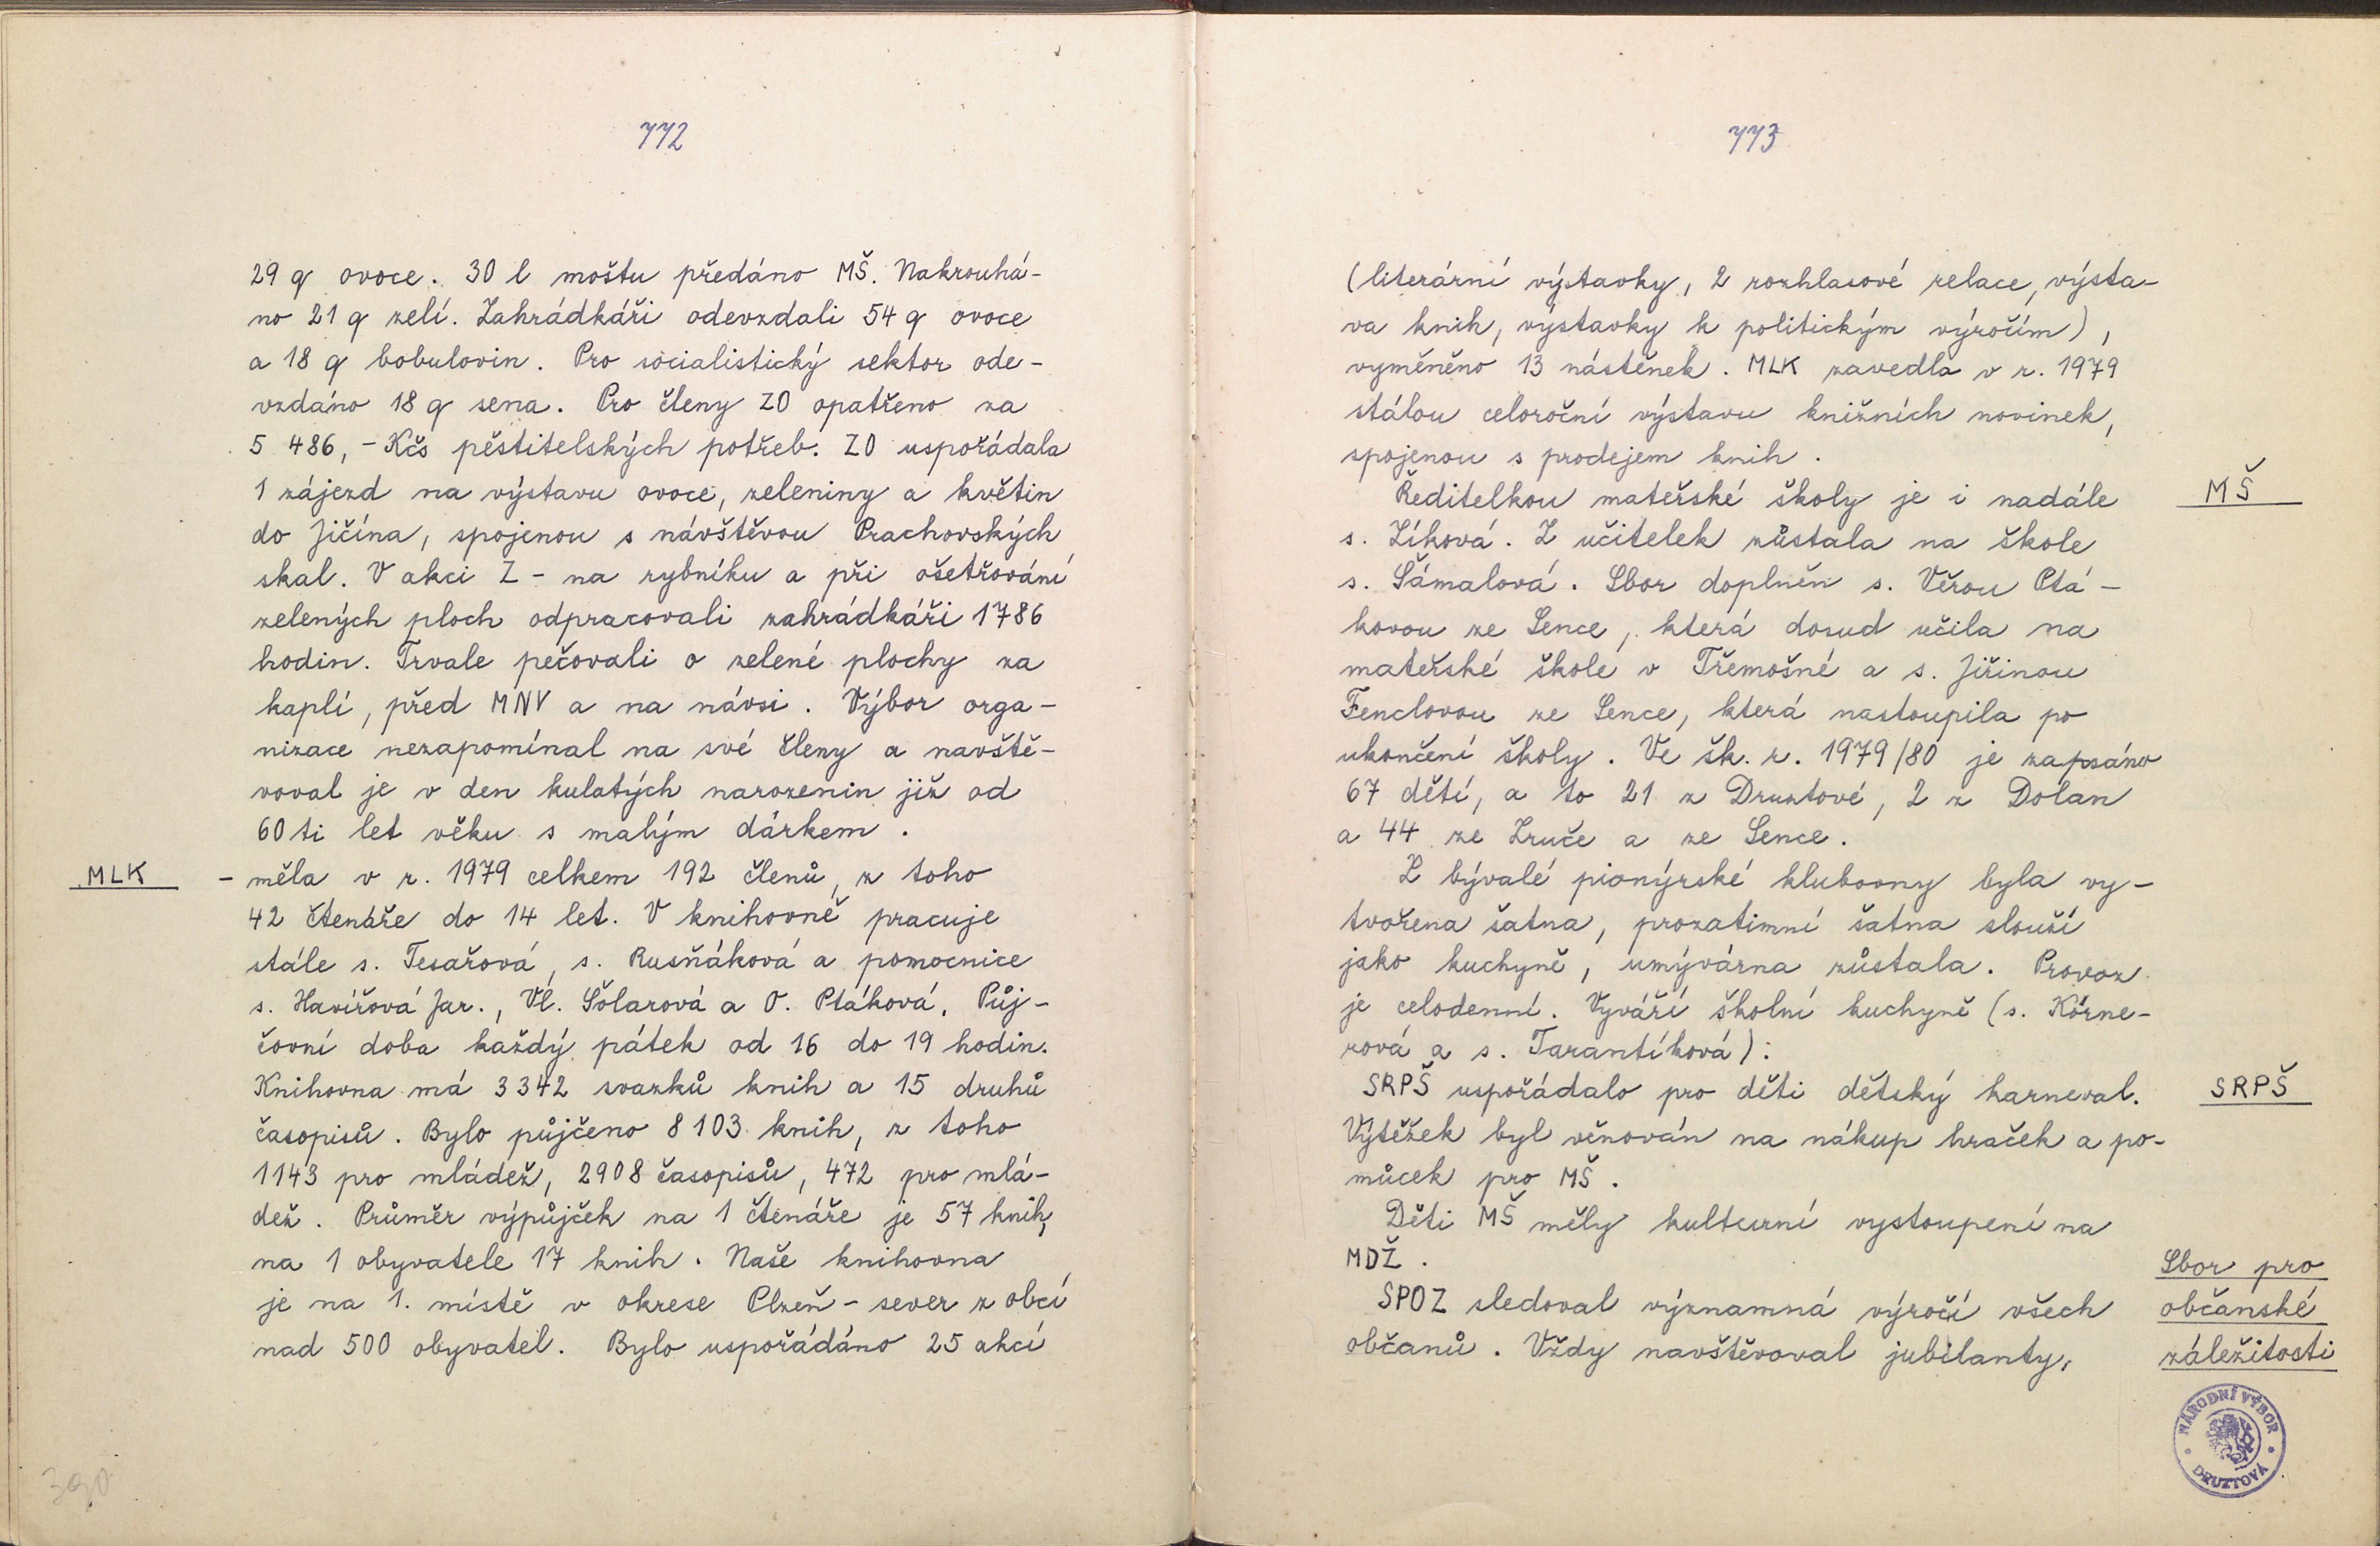 772
29 q ovoce. 30 l moštu předáno MŠ. Nakrouhá-
no 21 q zelí. Zahrádkáři odevzdali 54 q ovoce
a 18 q bobulovin. Pro socialistický sektor ode-
vzdáno 18 q sena. Pro členy ZO opatřeno za
5 486,- Kčs pěstitelských potřeb. ZO uspořádala
1 zájezd na výstavu ovoce, zeleniny a květin
do Jičína, spojenou s návštěvou Prachovských
skal. V akci Z - na rybníku a při ošetřování
zelených ploch odpracovali zahrádkáři 1786
hodin. Trvale pečovali o zelené plochy za
kaplí, před MNV a na návsi. Výbor orga-
nizace nezapomínal na své členy a navště-
voval je v den kulatých narozenin již od
60 ti let věku s malým dárkem.
MLK
- měla v r. 1979 celkem 192 členů, z toho
42 čtenáře do 14 let. V knihovně pracuje
stále s. Tesařová, s. Rusňáková a pomocnice
s. Havířová Jar., Vl. Šolarová a O. Ptáková. Půj-
čovní doba každý pátek od 16 do 19 hodin.
Knihovna má 3342 svazků knih a 15 druhů
časopisů. Bylo půjčeno 8 103 knih, z toho
1143 pro mládež, 2908 časopisů, 472 pro mlá-
dež. Průměr výpůjček na 1 čtenáře je 57 knih,
na 1 obyvatele 17 knih. Naše knihovna
je na 1. místě v okrese Plzeň - sever z obcí
nad 500 obyvatel. Bylo uspořádáno 25 akcí
390
773
(literární výstavky, 2 rozhlasové relace, výsta-
va knih, výstavky k politickým výročím),
vyměněno 13 nástěnek. MLK zavedla v r. 1979
stálou celoroční výstavu knižních novinek,
spojenou s prodejem knih.
Ředitelkou mateřské školy je i nadále
MŠ
s. Zíková. Z učitelek zůstala na škole
s. Šámalová. Sbor doplněn s. Věrou Ptá-
kovou ze Sence, která dosud učila na
mateřské škole v Třemošné a s. Jiřinou
Fenclovou ze Sence, která nastoupila po
ukončení školy. Ve šk. r. 1979/80 je zapsáno
67 dětí, a to 21 z Druztové, 2 z Dolan
a 44 ze Zruče a ze Sence.
Z bývalé pionýrské klubovny byla vy-
tvořena šatna, prozatimní šatna slouží
jako kuchyně, umývárna zůstala. Provoz
je celodenní. Vyváří školní kuchyně (s. Körne-
rová a s. Tarantíková).
SRPŠ uspořádalo pro děti dětský karneval.
SRPŠ
Výtěžek byl věnován na nákup hraček a po-
můcek pro MŠ.
Děti MŠ měly kulturní vystoupení na
MDŽ.
SPOZ sledoval významná výročí všech
občanů. Vždy navštěvoval jubilanty,
Sbor pro
občanské
záležitosti
NÁRODNÍ VÝBOR
DRUZTOVÁ